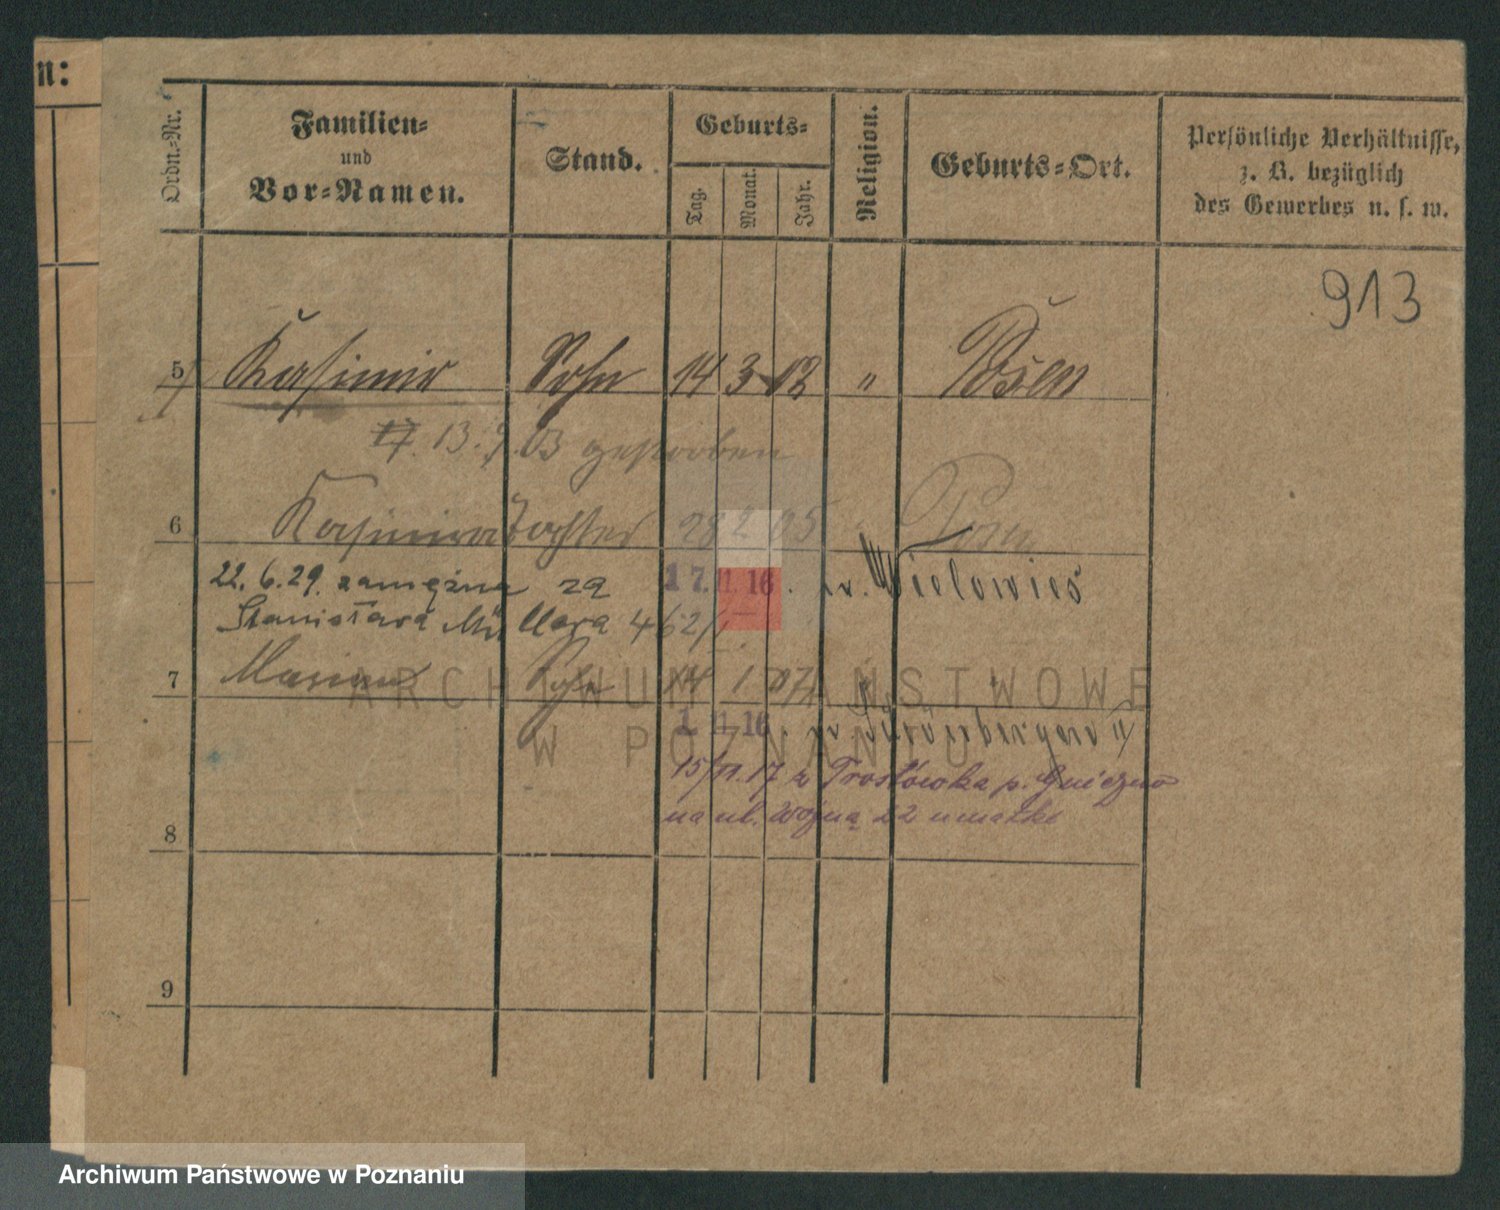 n:
Ordn.-Nr.
Familien-
und
Vor-Namen.
Stand.
Geburts-
Tag.
Monat.
Jahr.
Religion.
Geburts-Ort.
Persönliche Verhältnisse,
z. B. bezüglich
des Gewerbes u. s. w.
913
5 Kasimir Sohn 14 3 02 " Posen
17. 13. 9. 03 gestorben
6 Kasimira Tochter 28 2 05 Posen
22. 6. 29. zamężna za 17. 11. 16. n. Wielowieś
Stanisława Müllera 462/
7 Marian Sohn 14 1 07
1. 11. 16.
15/11. 17 z Trostówka p. Gniezno
na ul. Wojną 22 u matki
8
9
ARCHIWUM PAŃSTWOWE
W POZNANIU
Archiwum Państwowe w Poznaniu